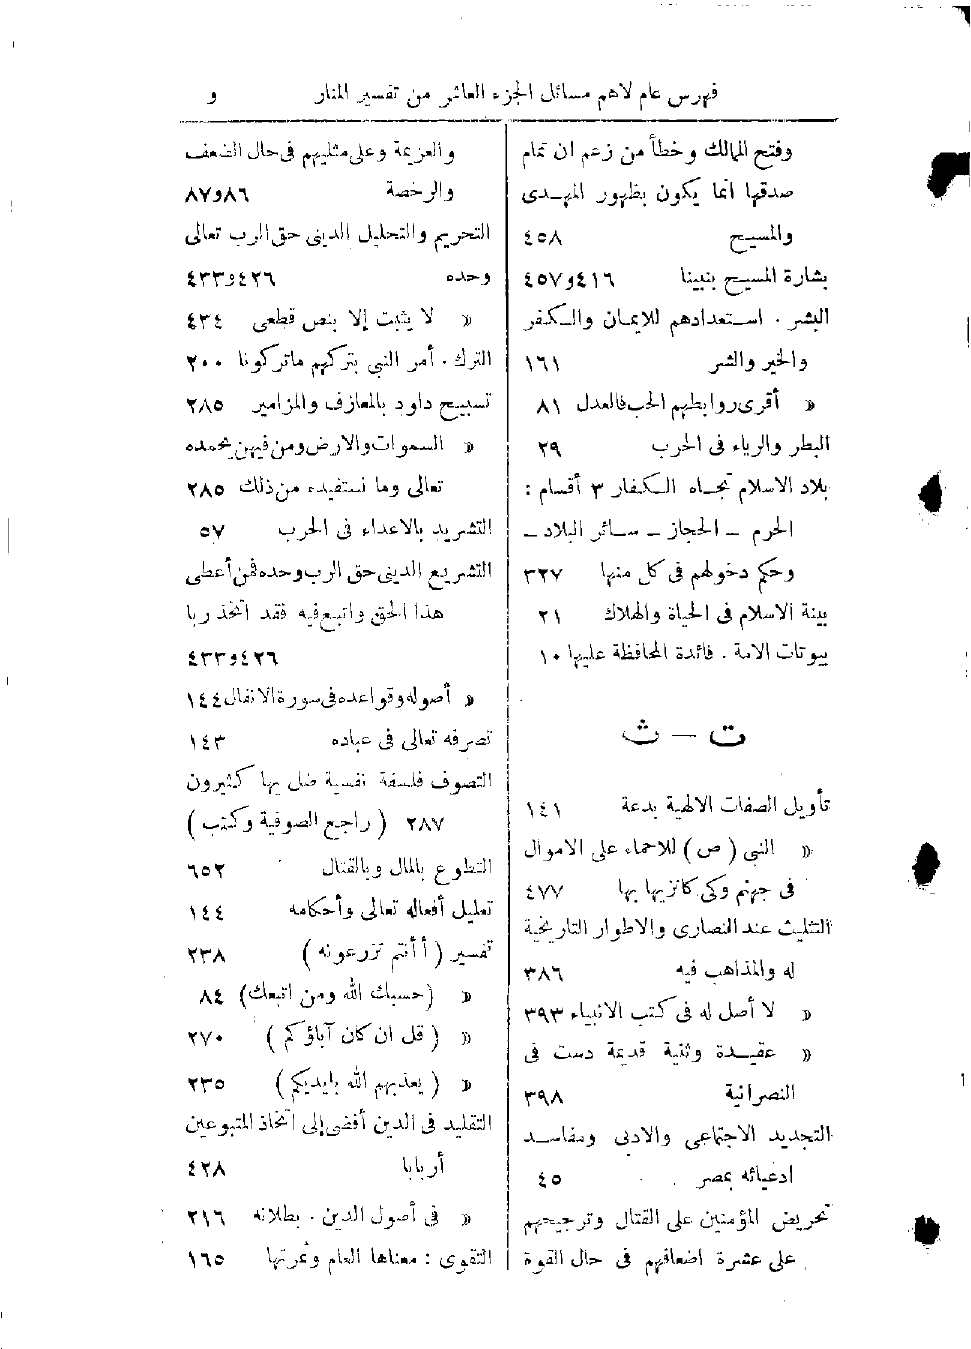 فهرس عام لاهم مسائل الجزء العاشر من تفسير المنار و
وفتح الممالك وخطأ من زعم ان تمام
صدقها انما يكون بظهور المهـدى
والمسيح ٤٥٨
بشارة المسيح بنبينا ٤١٦و٤٥٧
البشر . استعدادهم للايمان والكفر
والخير والشر ١٦١
« أقوى روابطهم الحب فالعدل ٨١
البطر والرياء فى الحرب ٢٩
بلاد الاسلام تجاه الكفار ٣ أقسام :
الحرم ـ الحجاز ـ سائر البلاد ـ
وحكم دخولهم فى كل منها ٣٢٧
بينة الاسلام فى الحياة والهلاك ٢١
بيوتات الامة . فائدة المحافظة عليها ١٠
ت — ث
تأويل الصفات الالهية بدعة ١٤١
« النبى ( ص ) للاحماء على الاموال
فى جهنم وكى كانزيها بها ٤٧٧
التثليث عند النصارى والاطوار التاريخية
له والمذاهب فيه ٣٨٦
« لا أصل له فى كتب الانبياء ٣٩٣
« عقيـدة وثنية قديمة دست فى
النصرانية ٣٩٨
التجديد الاجتماعى والادبى ومفاسد
ادعيائه بمصر ٤٥
تحريض المؤمنين على القتال وترجيحهم
على عشرة اضعافهم فى حال القوة
والعزيمة وعلى مثليهم فى حال الضعف
والرخصة ٨٦و٨٧
التحريم والتحليل الدينى حق الرب تعالى
وحده ٤٢٦و٤٣٣
« لا يثبت إلا بنص قطعى ٤٣٤
الترك . أمر النبى بتركهم ماتركونا ٢٠٠
تسبيح داود بالمعازف والمزامير ٢٨٥
« السموات والارض ومن فيهن بحمده
تعالى وما نستفيده من ذلك ٢٨٥
التشريد بالاعداء فى الحرب ٥٧
التشريع الدينى حق الرب وحده فمن أعطى
هذا الحق واتبع فيه فقد اتخذ ربا
٤٢٦و٤٣٣
« أصوله وقواعده فى سورة الانفال ١٤٤
تصرفه تعالى فى عباده ١٤٣
التصوف فلسفة نفسية ضل بها كثيرون
٢٨٧ ( راجع الصوفية وكتب )
التطوع بالمال وبالقتال ٦٥٢
تعليل أفعاله تعالى وأحكامه ١٤٤
تفسير ( أأنتم تزرعونه ) ٢٣٨
« (حسبك الله ومن اتبعك) ٨٤
« ( قل ان كان آباؤكم ) ٢٧٠
« ( يعذبهم الله بايديكم ) ٢٣٥
التقليد فى الدين أفضى إلى اتخاذ المتبوعين
أربابا ٤٢٨
« فى أصول الدين . بطلانه ٢١٦
التقوى : معناها العام وثمرتها ١٦٥